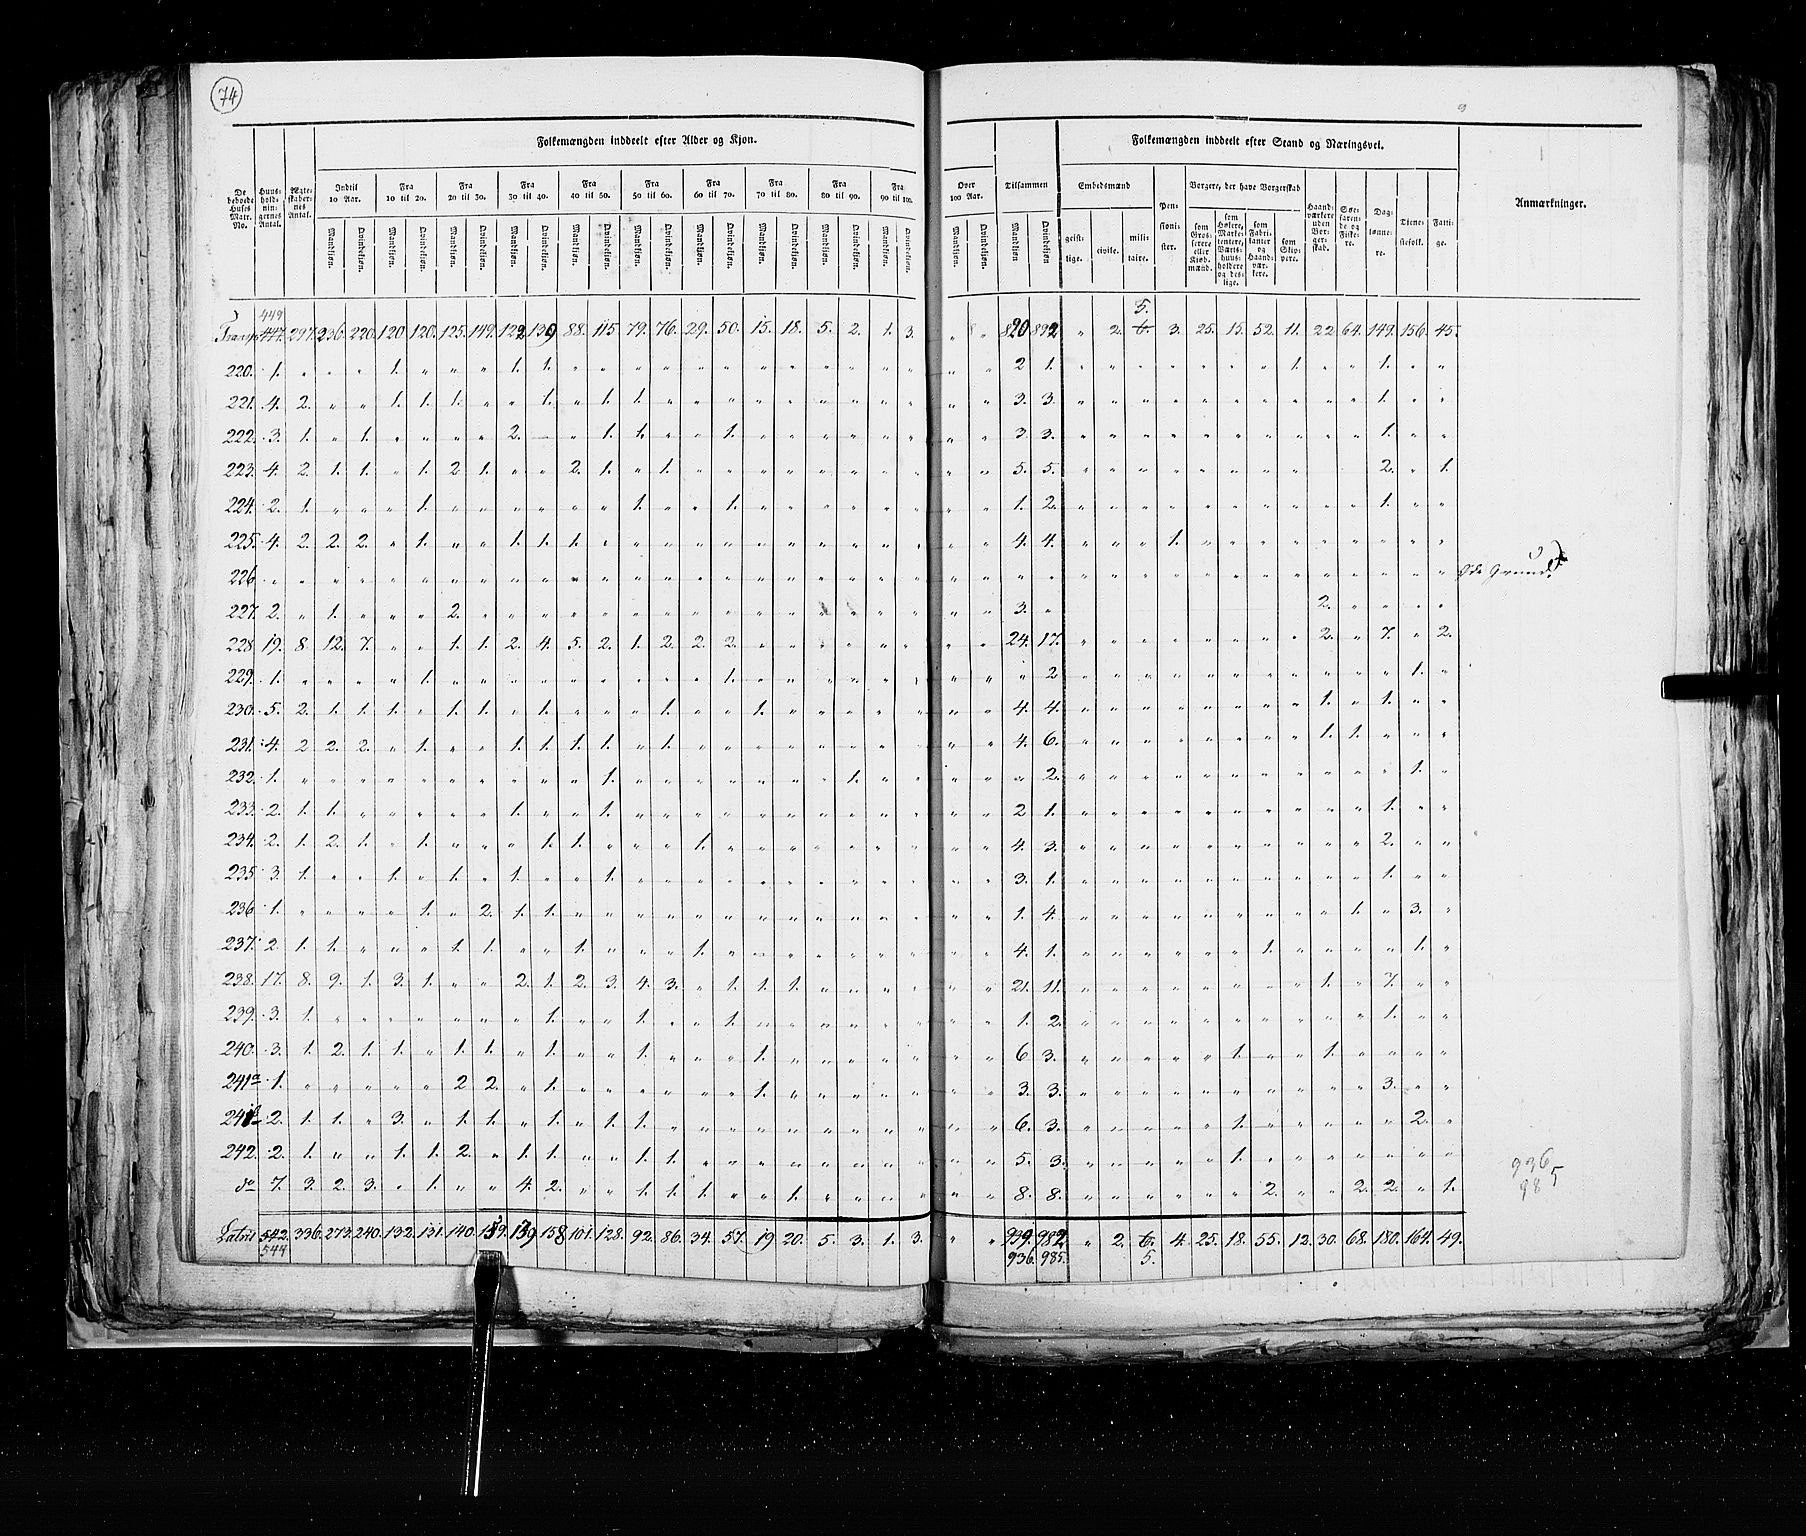 74
Folkemængden inddeelt efter Alder og Kjøn.
Folkemængden inddeelt efter Stand og Næringsvei.
De beboede Huses Matr. No. Huusholdningernes Antal. Ægteskabernes Antal. Indtil 10 Aar. Fra 10 til 20. Fra 20 til 30. Fra 30 til 40. Fra 40 til 50. Fra 50 til 60. Fra 60 til 70. Fra 70 til 80. Fra 80 til 90. Fra 90 til 100. Over 100 Aar. Tilsammen Embedsmænd Pensionister. Borgere, der have Borgerskab Haandværkere uden Borgerskab. Søefarende og Fiskere. Daglønnere. Tienestefolk. Fattige. Anmærkninger.
Mandkjøn. Qvindekjøn. Mandkjøn. Qvindekjøn. Mandkjøn. Qvindekjøn. Mandkjøn. Qvindekjøn. Mandkjøn. Qvindekjøn. Mandkjøn. Qvindekjøn. Mandkjøn. Qvindekjøn. Mandkjøn. Qvindekjøn. Mandkjøn. Qvindekjøn. Mandkjøn. Qvindekjøn. Mandkjøn. Qvindekjøn. Mandkjøn Qvindekjøn geistlige. civile. militaire. som Grosserere eller Kjøbmænd. som Høkere, Marketentere, Værtshuusholdere og deslige. som Fabrikanter og Haandværkere. som Skippere.
449 5.
Transp. 447. 297. 236. 220. 120. 120. 125. 149. 129. 139. 88. 115. 79. 76. 29. 50. 15. 18. 5. 2. 1. 3. " " 820 892 " 2. 6. 3. 25. 15. 52. 11. 22 64. 149. 156. 45.
220. 1. " " " 1. " " " 1. 1. " " " " " " " " " " " " " " 2 1. " " " " " " " 1. " " 1. " "
221. 4. 2. " " 1. 1. 1. " " 1. " 1. 1. " " " " " " " " " " " 3. 3. " " " " " " " " " " 1. " "
222. 3. 1. " 1. " " " " 2. " " 1. 1. " " 1. " " " " " " " " 3. 3. " " " " " " " " " " 1. " "
223. 4. 2. 1. 1. " 1. 2. 1. " " 2. 1. " 1. " " " " " " " " " " 5. 5. " " " " " " " " 2. " 1.
224. 2. 1. " " " 1. " " " " " " 1. " " 1. " " " " " " " " 1. 2. " " " " " " " " " " 1. " "
225. 4. 2. 2. 2. " 1. " " 1. 1. 1. " " " " " " " " " " " " " 4. 4. " " " 1. " " " " " " " " "
226 " " " " " " " " " " " " " " " " " " " " " " " " " " " " " " " " " " " " " " " Øde Grund.
227. 2. " 1. " " " 2. " " " " " " " " " " " " " " " " " 3. " 2. " " " "
228. 19. 8. 12. 7. " " 1. 1. 2. 4. 5. 2. 1. 2. 2. 2. " " " " " " " " 24. 17. " " " " " " " " 2. " 7. " 2.
229. 1. " " " " 1. " " " " " " " " " 1. " " " " " " " " " 2 " " " " " " " " " " " 1. "
230. 5. 2. 1. 1. 1. " 1. 1. " 1. " " " 1. " " 1. " " " " " " " 4. 4. " " " " " " " " 1. " 1. " "
231. 4. 2 2. 2. " 1. " " 1. 1. 1. 1. " 1. " " " " " " " " " " 4. 6. " " " " " " " " 1. 1. " " "
232. 1. " " " " " " " " " " 1. " " " " " " " 1. " " " " " 2. " " " " " " " " " " " 1. "
233. 2. 1. 1. " " " " " 1. " " 1. " " " " " " " " " " " " 2 1. " " " " " " " " " " 1. " "
234. 2. 1. 2. 1. " 1. " " " 1. 1. " " " 1. " " " " " " " " " 4. 3. " " " " " " " " " " 2. " "
235 3. 1. " " 1. " 1. " 1. " " 1. " " " " " " " " " " " " 3. 1. " " " " " " " " " " 1. " "
236 1. " " " " 1. " 2. 1. 1. " " " " " " " " " " " " " " 1. 4. " " " " " " " " " 1. " 3. "
237. 2. 1. 1. " " " 1. 1. " " 1. " " " 1. " " " " " " " " " 4. 1. " " " " " " 1. " " " " 1. "
238. 17. 8. 9. 1. 3. 1. " " 2. 1. 2. 3. 4. 3. " 1. 1. 1. " " " " " " 21. 11. " " " " " " " " 1. " 7. " "
239. 3. 1. " " " " " " " 1. " " 1. " " 1. " " " " " " " " 1. 2. " " " " " " " " " " 1. " "
240. 3. 1. 2. 1. 1. " 1. 1. " 1. " " 1. " " " 1. " " " " " " " 6 3. " " " " " 1. " " 1. " " " "
241a 1. " " " " " 2 2. " 1. " " " " " " 1. " " " " " " " 3. 3. " " " " " " " " " " 3. " "
241b 2. 1. 1. " 3. " 1. 1. " 1. " 1. 1. " " " " " " " " " " " 6. 3. " " " " " 1. " " " " " 2. "
242. 2. 1. " " 1. 1. 2. " 1. 1. " " 1. 1. " " " " " " " " " " 5. 3. " " " " " 1. " " " " " " "
do 7. 3. 2. 3. " 1. " " 4. 2. " " 1. 1. 1. " " 1. " " " " " " 8. 8. " " " " " " 2. " " 2. 2. " 1.
Latus 542. 336. 273. 240. 132. 131. 140. 159. 139 158 101. 128. 92. 86. 34. 57. 19 20. 5. 3. 1. 3. " " 939. 982. " 2. 6. 4. 25. 18. 55. 12. 30. 68. 180. 164. 49.
544 936. 985. 5.
936
985